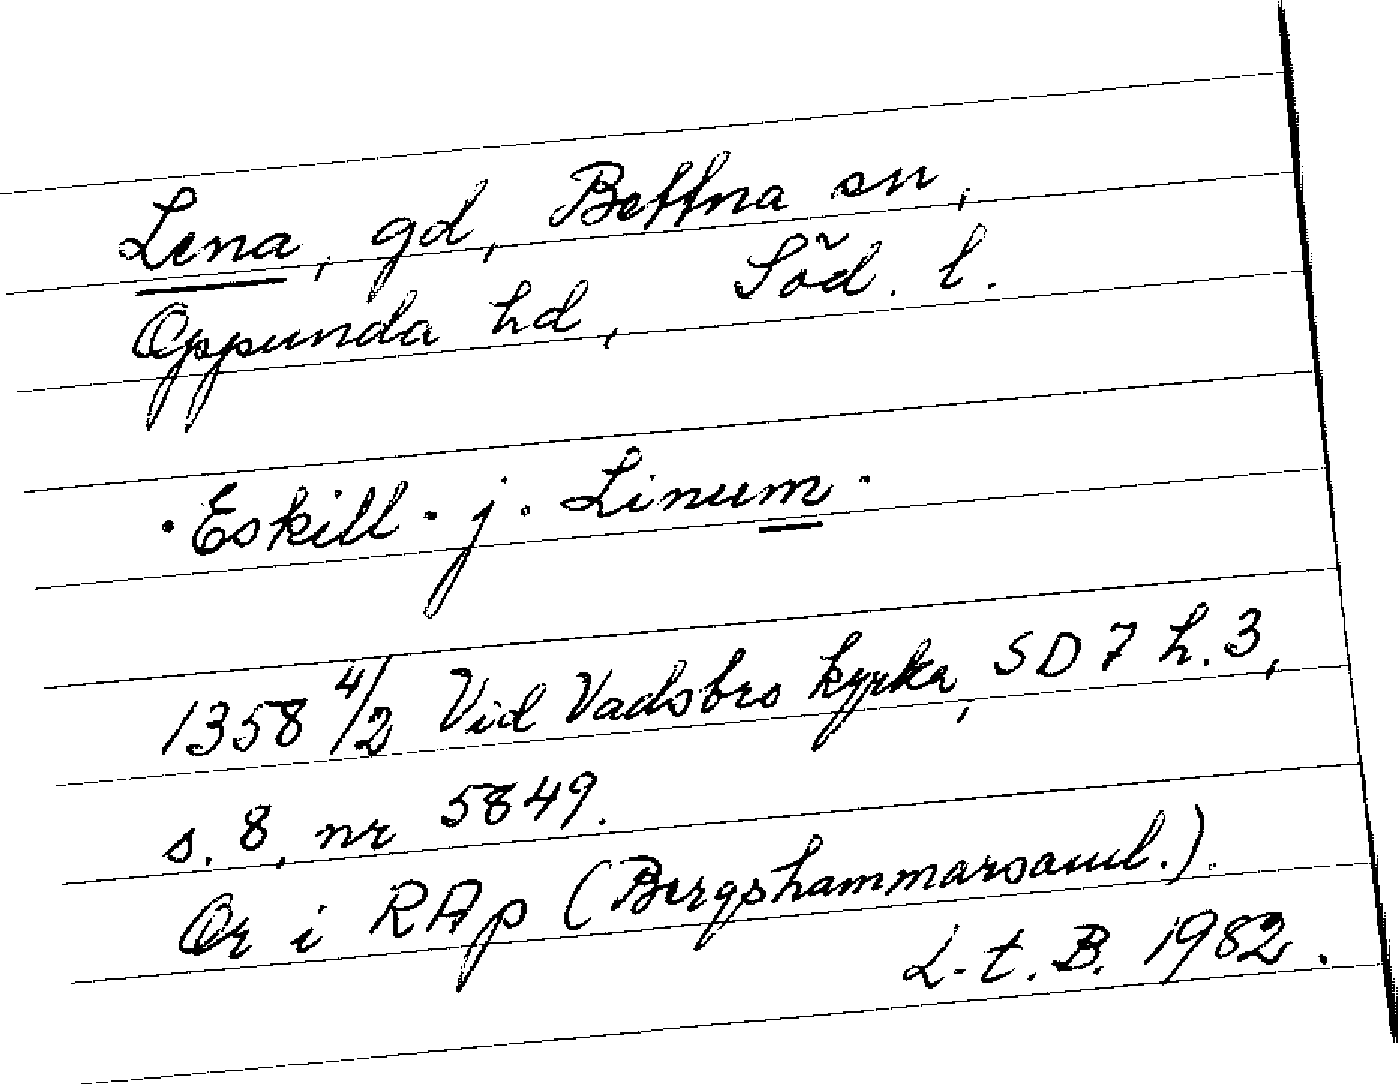 Lena, gd, Bettna sn,
Oppunda hd, Söd. l.
· Eskill · j · Linum ·
1358 4/2 Vid Vadsbro kyrka, SD 7 h. 3,
s. 8, nr 5849.
Or i RAp (Bergshammarsaml.).
L. t. B. 1982.